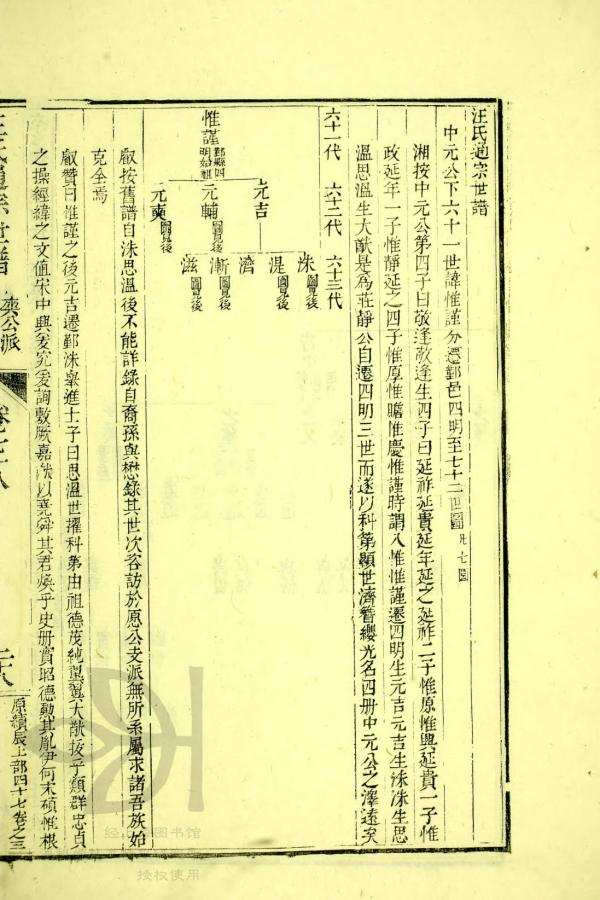 汪氏通宗世譜
中元公下六十一世諱惟謹分遷鄞邑四明至七十二世圖 凡七圖
湘按中元公第四子曰敬逢敬逢生四子曰延祚延貴延年延之延祚二子惟原惟興延貴一子惟
政延年一子惟靜延之四子惟原惟贍惟慶惟謹時謂八惟惟謹遷四明生元吉元吉生洙洙生思
溫思溫生大猷是為莊靜公自遷四明三世而遂以科第顯世濟簪纓光名四册中元公之澤遠矣
六十一代 六十二代 六十三代
惟謹 鄞縣四明始祖
元吉
元輔 圖見後
元奭 圖見後
洙 圖見後
湜 圖見後
濟
漸 圖見後
滋 圖見後
叡按舊譜自洙思溫後不能詳錄自裔孫與懋錄其世次咨訪於愿公支派無所系屬求諸吾族始
克全焉
叡贊曰惟謹之後元吉遷鄞洙舉進士子曰思溫世擢科第由祖德茂純翼翼大猷拔乎類群忠貞
之操經緯之文值宋中興爰究爰詢敷厥嘉猷以堯舜其君煥乎史册實昭德勳其胤伊何末碩惟根
汪氏通宗世譜
爽公派
卷之二八
二八
原續辰上部四十七卷之三
图书馆
授权使用